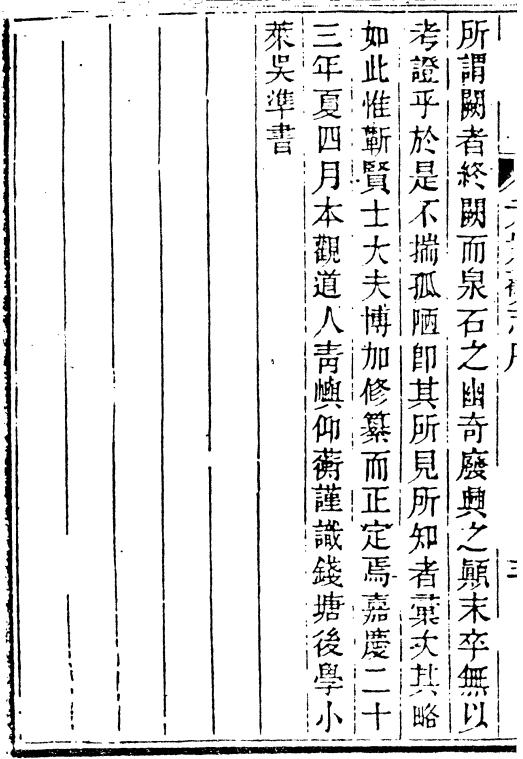 所謂闕者終闕而泉石之幽奇廢興之顚末卒無以
考證乎於是不揣孤陋卽其所見所知者彚次其略
如此惟蘄賢士大夫博加修纂而正定焉嘉慶二十
三年夏四月本觀道人靑嶼仰蘅謹識錢塘後學小
萊吳準書